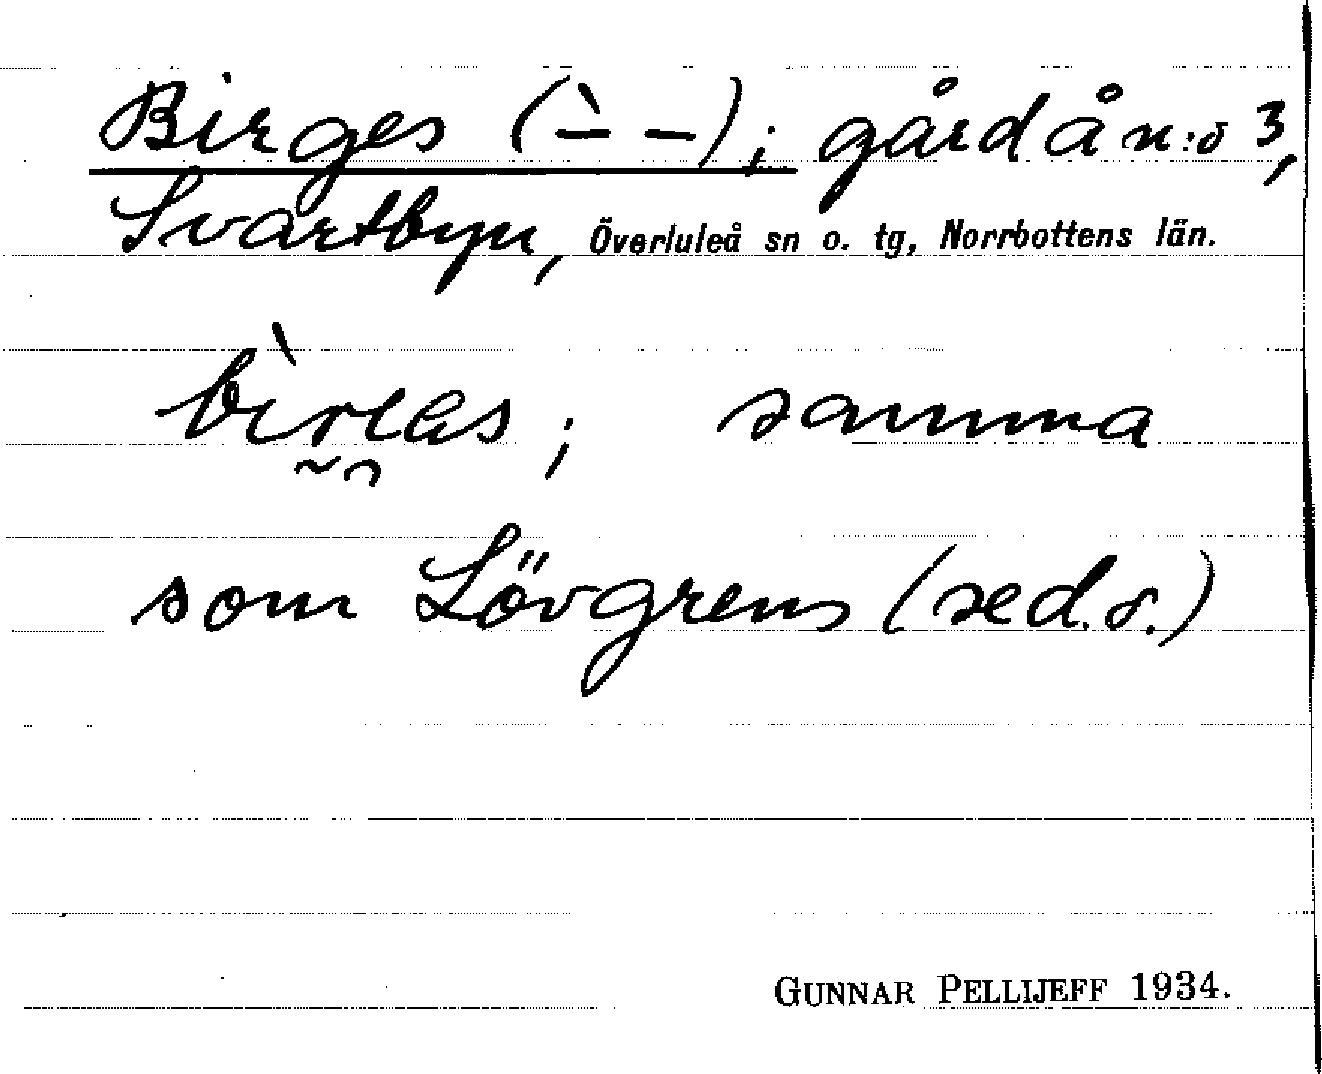 Birges (–̀ –); gård å n:o 3,
Svartbyn, Överluleå sn o. tg, Norrbottens län.
samma
som Lövgrens (sed. o.)
GUNNAR PELLIJEFF 1934.